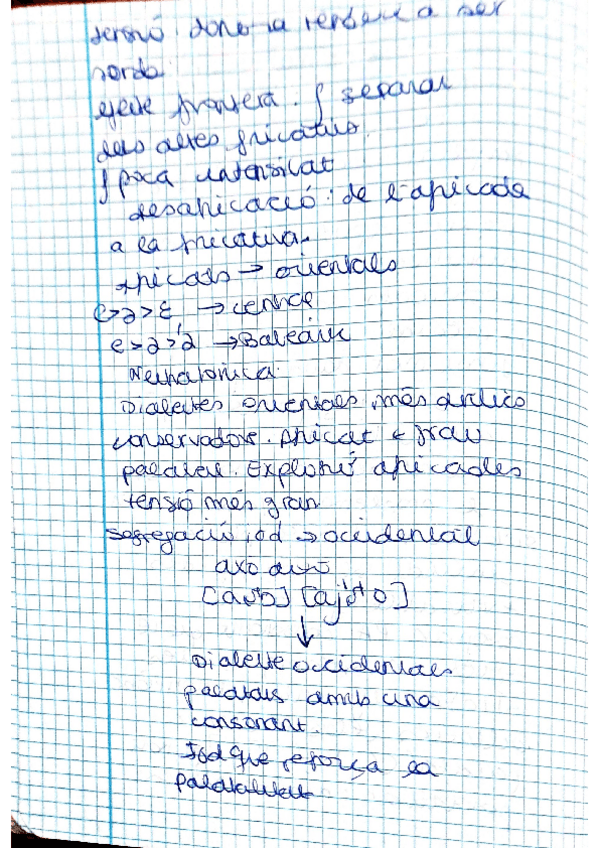 tensió dona la tendència a ser
sorda.
efecte frontera. ʃ separar
dels altres fricatius.
ʃ poca intensitat
desapicació: de l'apicada
a la fricativa.
apicals → orientals
e>ə>ɛ → central
e>ə>ə́ → Balearic
Dialectes orientals més antics
conservadors. Apicat
palatal. Explosió apicades
tensió més gran
segregació iod → occidental
axo
[aʃɔ] [ajʃɔ]
↓
Dialecte occidentals
palatals amb una
consonant.
Iod que reforça la
palatalitat